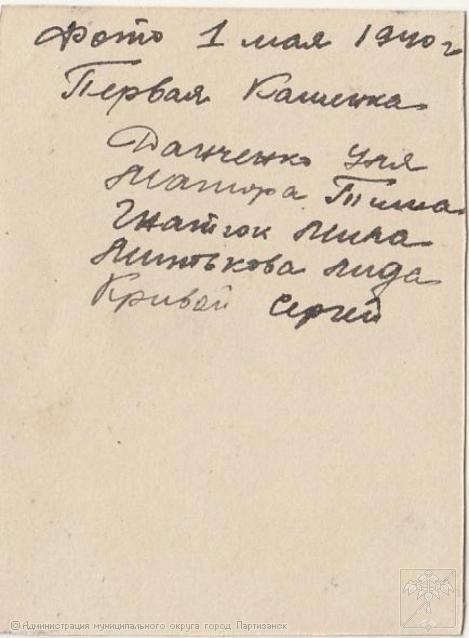 Фото 1 мая 1940 г
Первая Каменка
Данченко Уня
Матора Тима
Гнатюк Мила
Минькова Лида
Кривой Сергей
© Администрация муниципального округа город Партизанск